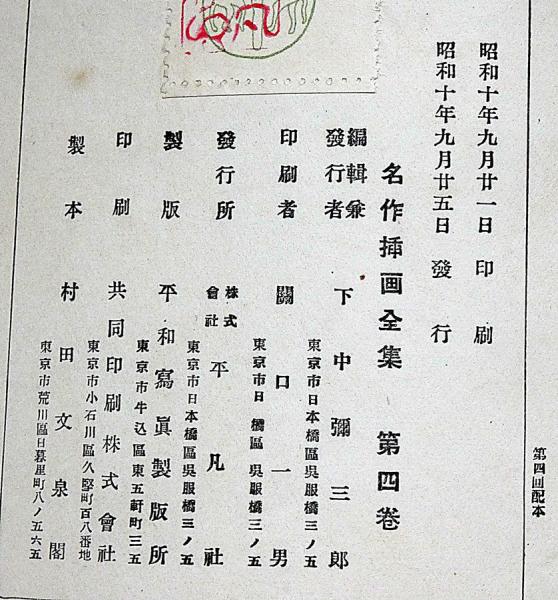 昭和十年九月廿一日 印刷
昭和十年九月廿五日 發行
名作挿画全集 第四卷
編輯兼發行者 下中彌三郎
東京市日本橋區吳服橋三ノ五
印刷者 關口一男
東京市日 橋區吳服橋三ノ五
發行所 株式會社 平凡社
東京市日本橋區吳服橋三ノ五
製版 平和寫眞製版所
東京市牛込區東五軒町三五
印刷 共同印刷株式會社
東京市小石川區久堅町百八番地
製本 村田文泉閣
東京市荒川區日暮里町八ノ五六五
第四回配本